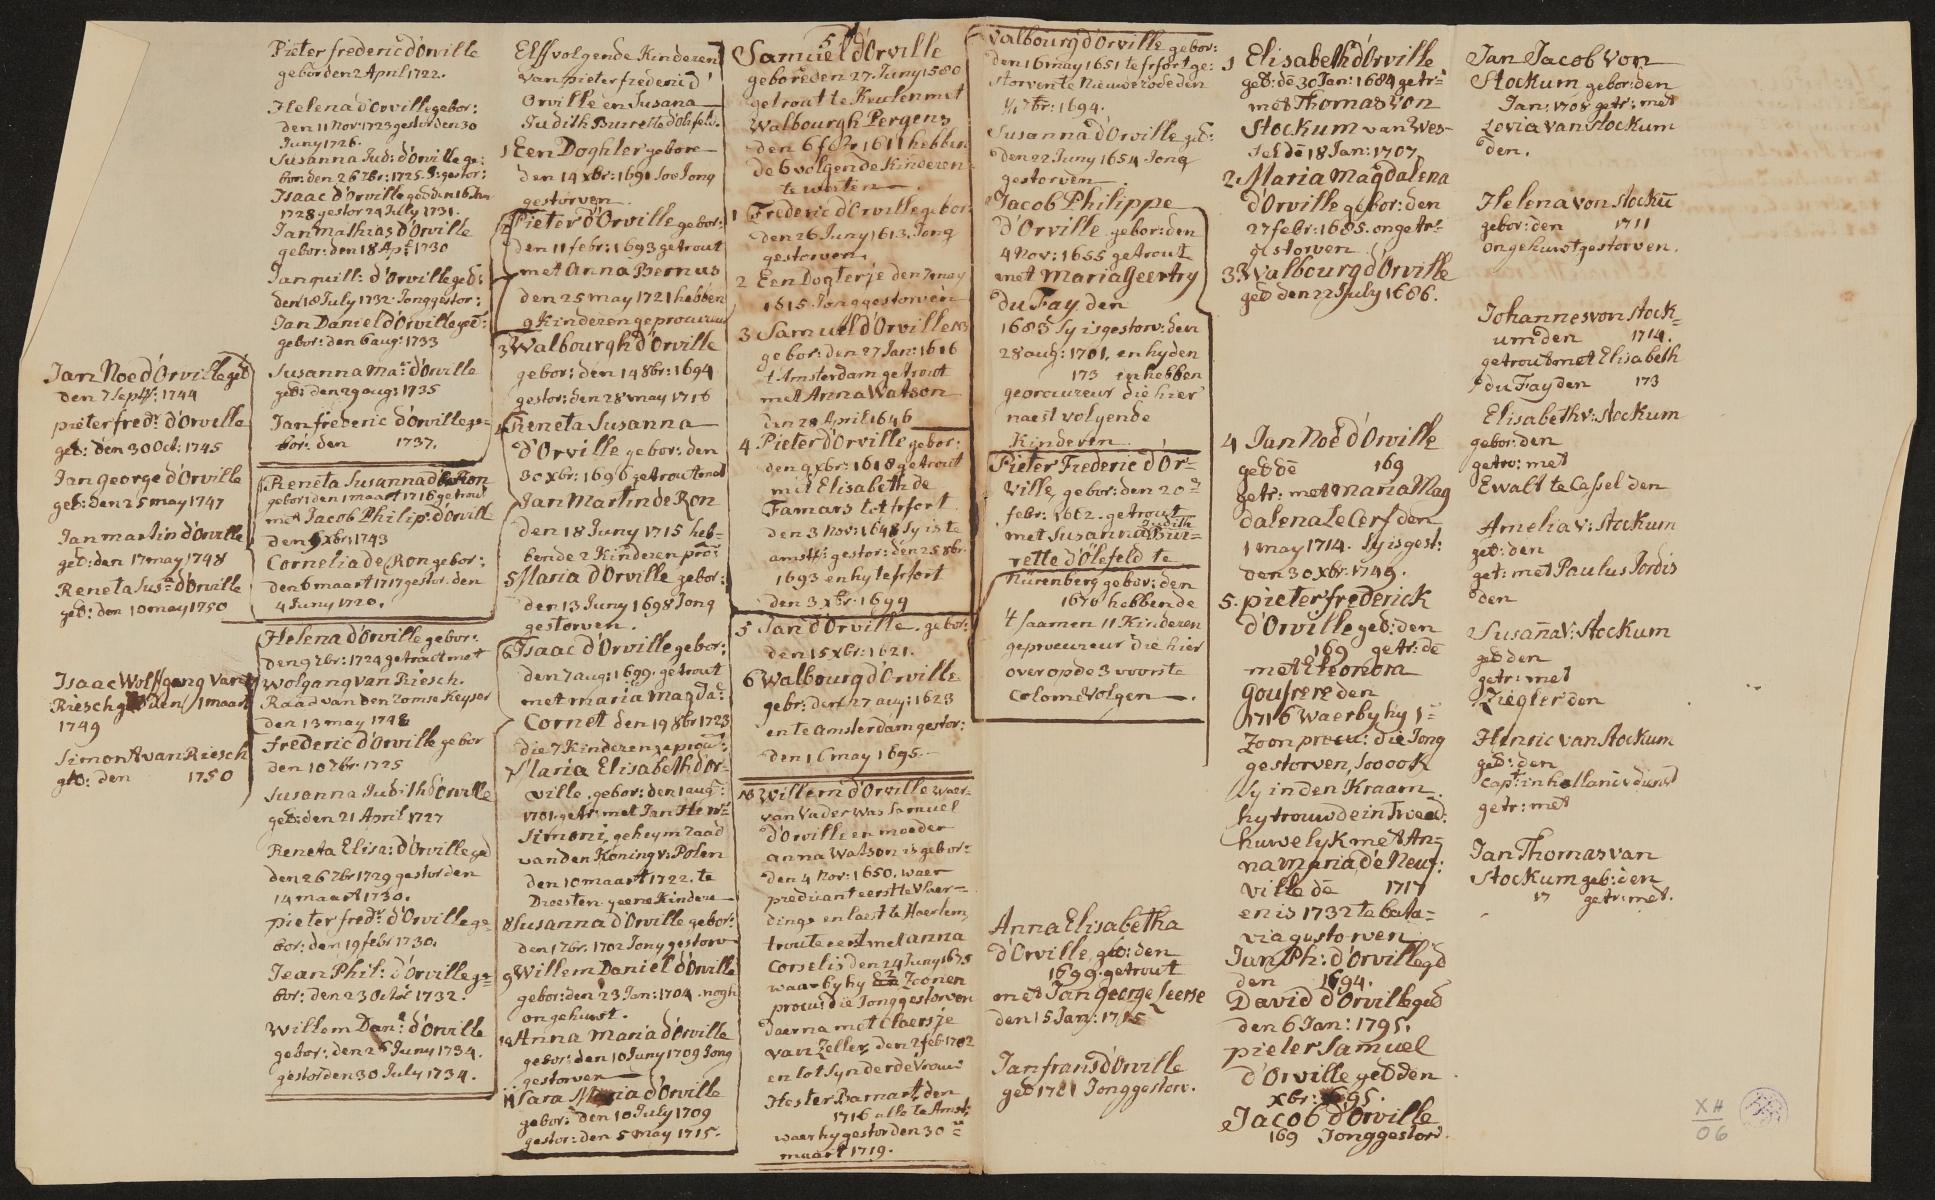 Jan Noe d'Orville geb
den 7 Sept: 1744
pieter fred: d'Orville
geb: den 30 Oct: 1745
Jan george d'Orville
geb: den 25 may 1747
Jan martin d'Orville
geb: den 17 may 1748
Reneta Sus:a d'Orville
geb: den 10 may 1750
Isaac Wolffgang van
Riesch geb den 1 maart
1749
Simon A van Riesch
geb: den 1750
Pieter frederic d'Orville
gebor den 2 April 1722.
Helena d'Orville gebor:
den 11 Nov: 1723 gestor den 30
Juny 1726.
Susanna Jud: d'Orville ge:
bor: den 26 7br: 1725. J: gestor:
Isaac d'Orville geb den 16 Jan
1728 gestor 24 Jully 1731.
Jan mathias d'Orville
gebor: den 18 Apr: 1730
Jan guill: d'Orville geb:
den 18 July 1732 Jong gestor:
Jan Daniel d'Orville ge:
gebor: den 6 aug: 1733
Susanna Ma: d'Orville
geb: den 29 aug: 1735
Jan frederic d'Orville ge=
bor: den 1737.
Reneta Susanna de Ron
gebor: den 1 maart 1716 getrout
met Jacob Philip: d'Orvill
den 9 xbr: 1743
Cornelia de Ron gebor:
den 6 maart 1717 gestor. den
4 Juny 1720.
Helena d'Orville gebor:
den 9 7br: 1724 getrout met
Wolgang van Riesch.
Raad van den Romse Keyser
den 13 may 1748
frederic d'Orville gebor
den 10 7br: 1725
Susanna Judith d'Orville
geb: den 21 April 1727
Reneta Elisa: d'Orville geb
den 26 7br 1729 gestor den
14 maart 1730.
pieter fred: d'Orville ge=
bor: den 19 febr 1730.
Jean Phil: d'Orville ge=
bor: den 23 Octob 1732.
Willem Dan:l d'Orville
gebor: den 26 Juny 1734.
gestor den 30 July 1734.
Elff volgende Kinderen
van pieter frederic d'
Orville en Susana
Judith Burrette d'Olefeld.
1 Een Doghter gebore
den 14 xbr: 1691 Soo Jong
gestorven.
2 Pieter d'Orville gebor:
den 11 febr: 1693 getrout
met Anna Bernus
den 25 may 1721 hebben
9 Kinderen geprocureu
3 Walbourgh d'Orville
gebor: den 14 8br: 1694
gestor: den 28 may 1716
4 Reneta Susanna
d'Orville gebor: den
30 xbr: 1696 getrout met
Jan Martin de Ron
den 18 Juny 1715 heb-
bende 2 Kinderen pro:
5 Maria d'Orville gebor:
den 13 Juny 1698 Jong
gestorven.
6 Isaac d'Orville gebor:
den 7 aug: 1699. getrout
met maria magda:
Cornet den 19 8br 1723
die 7 Kinderen ge procu:
7 Maria Elisabeth d'Or-
ville. gebor: den 1 aug:
1701. getr: met Jan Henr:
Simoni, geheym raad
van den Koning v: Polen
den 10 maart 1722. te
Dresten geene Kindere
8 Susanna d'Orville gebor:
den 1 7br: 1702 Jong gestorv
9 Willem Daniel d'Orville
gebor: den 23 Jan: 1704. nogh
ongehuwt.
10 Anna Maria d'Orville
gebor: den 10 Juny 1709 Jong
gestorven
11 Sara Maria d'Orville
gebor: den 10 July 1709
gestor: den 5 may 1715.
5
Samuel d'Orville
geboreden 27. Juny 1580
getrout te Keulen met
Walbourgh Pergens
den 6 febr 1611 hebben
de 6 volgende Kinderen
te weeten
1 Frederic d'Orville gebor:
den 26 Juny 1613. Jong
gestorven
2 Een Dogterje den 7 may
1615. Jong gestorven
3 Samuel d'Orville NB
gebor: den 27 Jan: 1616
t Amsterdam getrout
met Anna Watson
den 29 April 1646
4 Pieter d'Orville gebor:
den 9 xbr: 1618 getrout
met Elisabeth de
Famars tot frfort
den 3 Nov: 1648 Sy is te
amst: gestor: den 25 8br:
1693 en hy te frfort
den 3 xbr: 1699
5 Jan d'Orville. gebor:
den 15 xbr: 1621.
6 Walbourg d'Orville
gebr: den 27 aug: 1623
en te Amsterdam gestor:
den 16 may 1695.
NB Willem d'Orville waer-
van Vader was Samuel
d'Orville en moeder
anna Watson is gebor:
den 4 Nov: 1650. waer
predicant eerst te Vlaer=
dinge en laest te Haerlem
troute eerst met anna
Corselis den 24 Juny 1675
waar by hy 2 Zoonen
procu: die Jong gestorven
daerna met Claersje
van Zeller, den 2 feb: 1702
en lot Syn derde Vrou:
Hester Barnart, den
1716 alle te Amst:
waer hy gestor den 30
maart 1719.
Walbourg d'Orville gebor:
den 16 may 1651 te frfort ge:
storven te Nieuwerode den
1/11 7br: 1694.
Susanna d'Orville geb:
den 22 Juny 1654 Jong
gestorven
Jacob Philippe
d'Orville gebor: den
4 Nov: 1655 getrout
met Maria Geertry
du Fay den
1683 Sy is gestorv: den
28 aug: 1701, en hy den
173 en hebben
geprocureur die hier
naest volgende
Kinderen
Pieter Frederic d'Or=
ville, gebor: den 20
febr: 1662. getrout
met Susanna Judith Bur=
rette d'Olefeld te
Nürenberg gebor: den
1670 hebbende
t Saamen 11 Kinderen
geprocureur die hier
over op de 3 voorste
Colom Volgen.
Anna Elisabetha
d'Orville, geb: den
1699. getrout
met Jan George Leerse
den 15 Jan: 1715
Jan frans d'Orville
geb 1701 Jong gestorv.
1 Elisabeth d'Orville
geb: de 30 Jan: 1684 getr:
met Thomas Von
Stockum van Wes-
sel de 18 Jan: 1707
2 Maria Magdalena
d'Orville gebor: den
27 febr: 1685. ongetr:
gestorven
3 Walbourg d'Orville
geb den 22 July 1686.
4 Jan Noé d'Orville
geb de 169
getr: met Maria Mag
dalena Le Cerf den
1 may 1714. Sy is gest:
den 30 xbr: 1749.
5. pieter frederick
d'Orville geb: den
169 getr: de
met Eleonora
Goufrere den
1716 Waer by hy 1
Zoon procu: die Jong
gestorven, Soo ook
Sy in den Kraam.
hy trouwde in Tweed:
huwelyk met An=
na Maria, de Neuf:
Ville de 1717
en is 1732 te bata=
via gestorven.
Jan Ph: d'Orville gb
den 1694.
David d'Orville geb
den 6 Jan: 1795.
pieter Samuel
d'Orville geb den
xbr: 1695.
Jacob d'Orville
169 Jong gestorv.
Jan Jacob Von
Stockum gebor: den
Jan: 1708 getr: met
Lovia van Stockum
den.
Helena von Stockum
gebor: den 1711
ongehuwt gestorven.
Johannes von Stock=
um den 1714.
getrout met Elisabeth
du Fay den 173
Elisabeth v: Stockum
gebor: den
getro: met
Ewalt te Cassel den
Amelia v: Stockum
geb: den
get: met Paulus Jordis
den
Susana V: Stockum
geb den
getr: met
Ziegler den
Henric van Stockum
geb: den
Capt: in hollans dienst
getr: met
Jan Thomas van
Stockum geb: den
17 getr: met.
XH
06